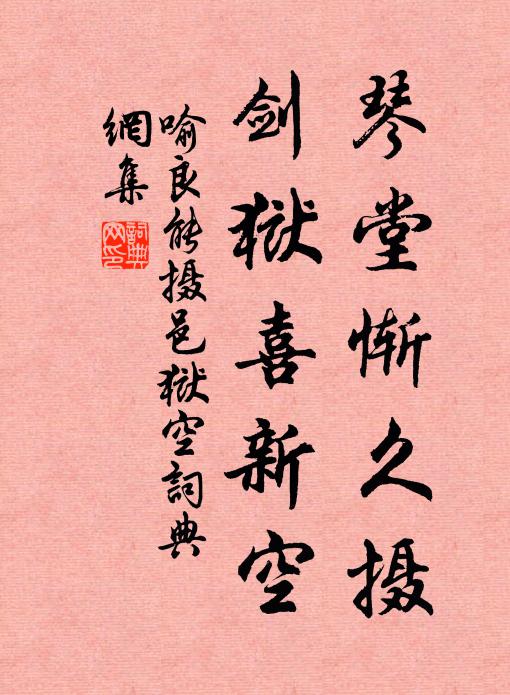 琴堂惭久摄
剑狱喜新空
喻良能摄邑狱空词典
網集
詞典網印